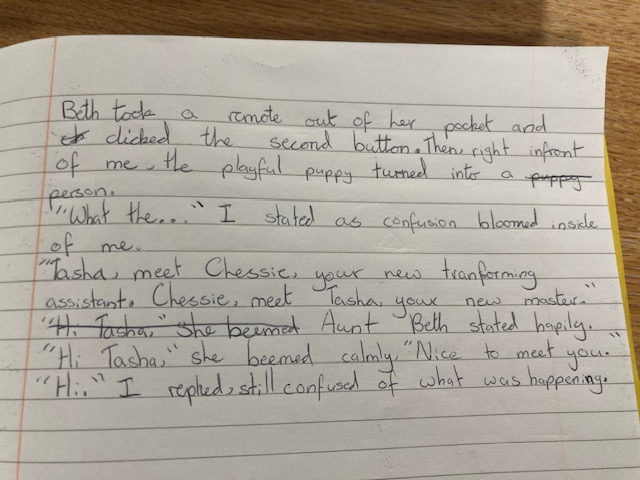 Beth took a remote out of her pocket and
clicked the second button. Then, right infront
of me, the playful puppy turned into a puppy
person.
"What the..." I stated as confusion bloomed inside
of me.
"Tasha, meet Chessie, your new tranforming
assistant. Chessie, meet Tasha, your new master."
"Hi Tasha," she beemed Aunt Beth stated hapily.
"Hi Tasha," she beemed calmly, "Nice to meet you."
"Hi.." I replied, still confused of what was happening.